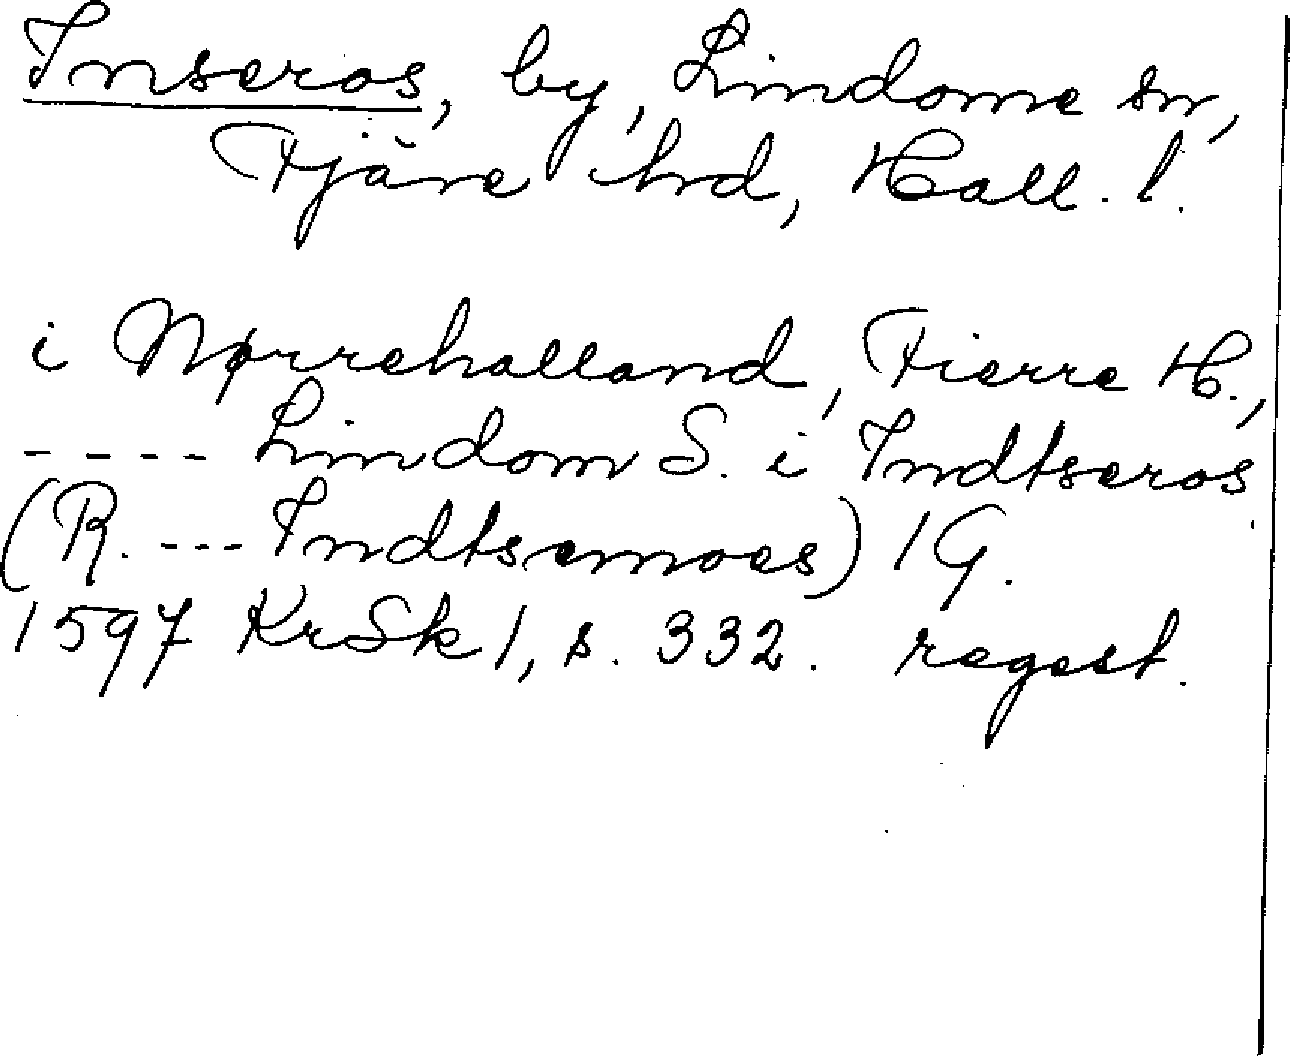 Inseros, by, Lindome sn,
Fjäre hrd, Hall. l.
i Nørrehalland, Fierre H.,
---- Lindom S. i Indtseros
(R. --- Indtsemoes) 1 G.
1597 KrSk 1, s. 332. regest.